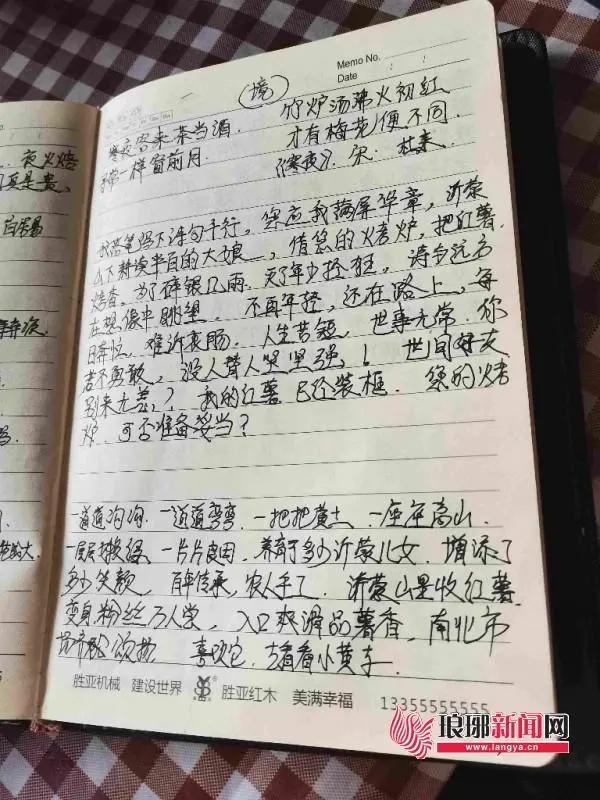 夜火焙
Memo No.
Date
境
寒夜客来茶当酒. 竹炉汤沸火初红
寻常一样窗前月. 才有梅花便不同.
《寒夜》. 宋. 杜耒
我落笔写下诗句千行, 您应我满屏华章, 沂蒙
山下耕读半百的大娘, 借您的烤炉, 把红薯
烤香. 为了碎银几两. 忘了年少轻狂. 诗与远方
在想像中眺望. 不再年轻, 还在路上, 每
日奔忙, 难诉衷肠. 人生苦短, 世事无常. 你
若不勇敢, 没人替人坚强! 世间好友
别来无恙? 我的红薯已经装框. 您的烤
炉. 可否准备妥当?
一道道沟沟. 一道道弯弯. 一把把黄土 一座座高山.
一层层梯, 一片片良田, 养育了多少沂蒙儿女. 增添了
多少笑颜, 百年传承, 农人手工. 沂蒙山里收红薯.
变身粉丝万人学, 入口爽滑品薯香, 南北市
颂扬 喜欢它 请看小黄
胜亚机械 建设世界 胜亚红木 美满幸福 13355555555
琅琊新闻网
www.langya.cn